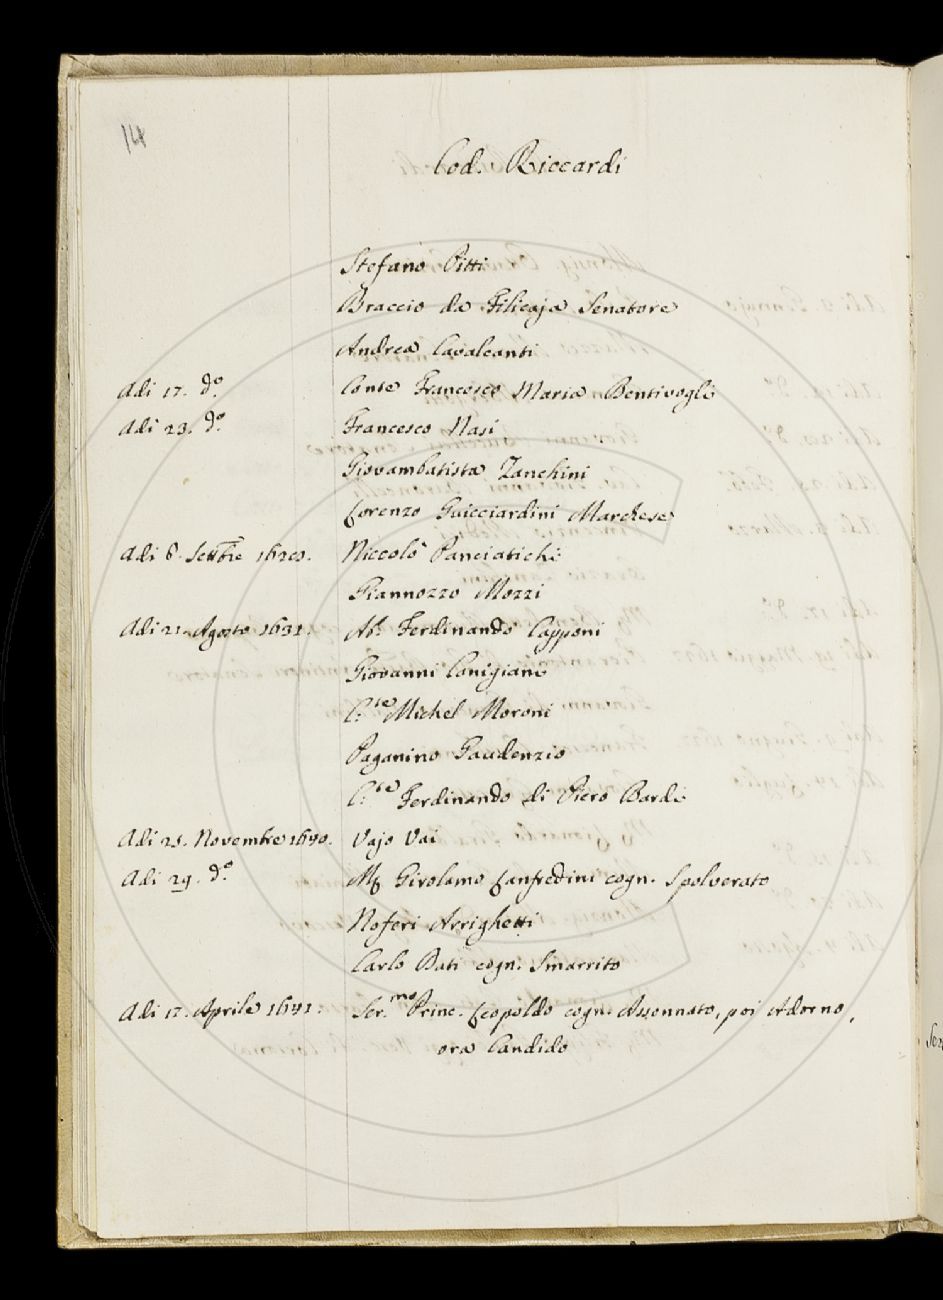 14
Cod. Riccardi
Stefano Pitti
Braccio da Filicaja Senatore
Andrea Cavalcanti
Adi 17. do. Conte Francesco Maria Bentivogli
Adi 23. do. Francesco Nasi
Giovambatista Zanchini
Lorenzo Guicciardini Marchese
Adi 6. Settbre Niccolò Panciatichi
Giannozzo Mozzi
Adi 21. Agosto 1631. Ab. Ferdinando Capponi
Giovanni Canigiani
C.te Michel Moroni
Paganino Gaudenzio
C.te Ferdinando di Piero Bardi
Adi 21. Novembre 1640. Vajo Vai
Adi 29. do. Girolamo Lanfredini cogn. Spolverato
Noferi Arrighetti
Carlo Bati cogn. Smarrito
Adi 17. Aprile 1641. Ser.mo Princ. Leopoldo cogn. Assonnato, poi Adorno,
ora Candido